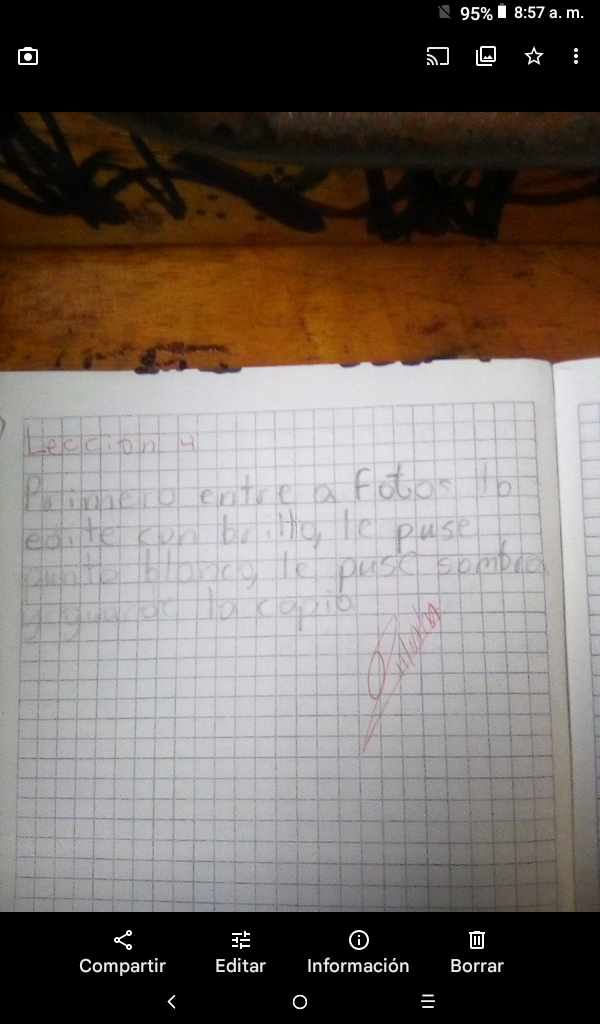 95% 8:57 a. m.
Leccion 4
Primero entre a fotos lo
edite con brillo, le puse
punto blanco, le puse sombra
y guarde la copia
Compartir Editar Información Borrar